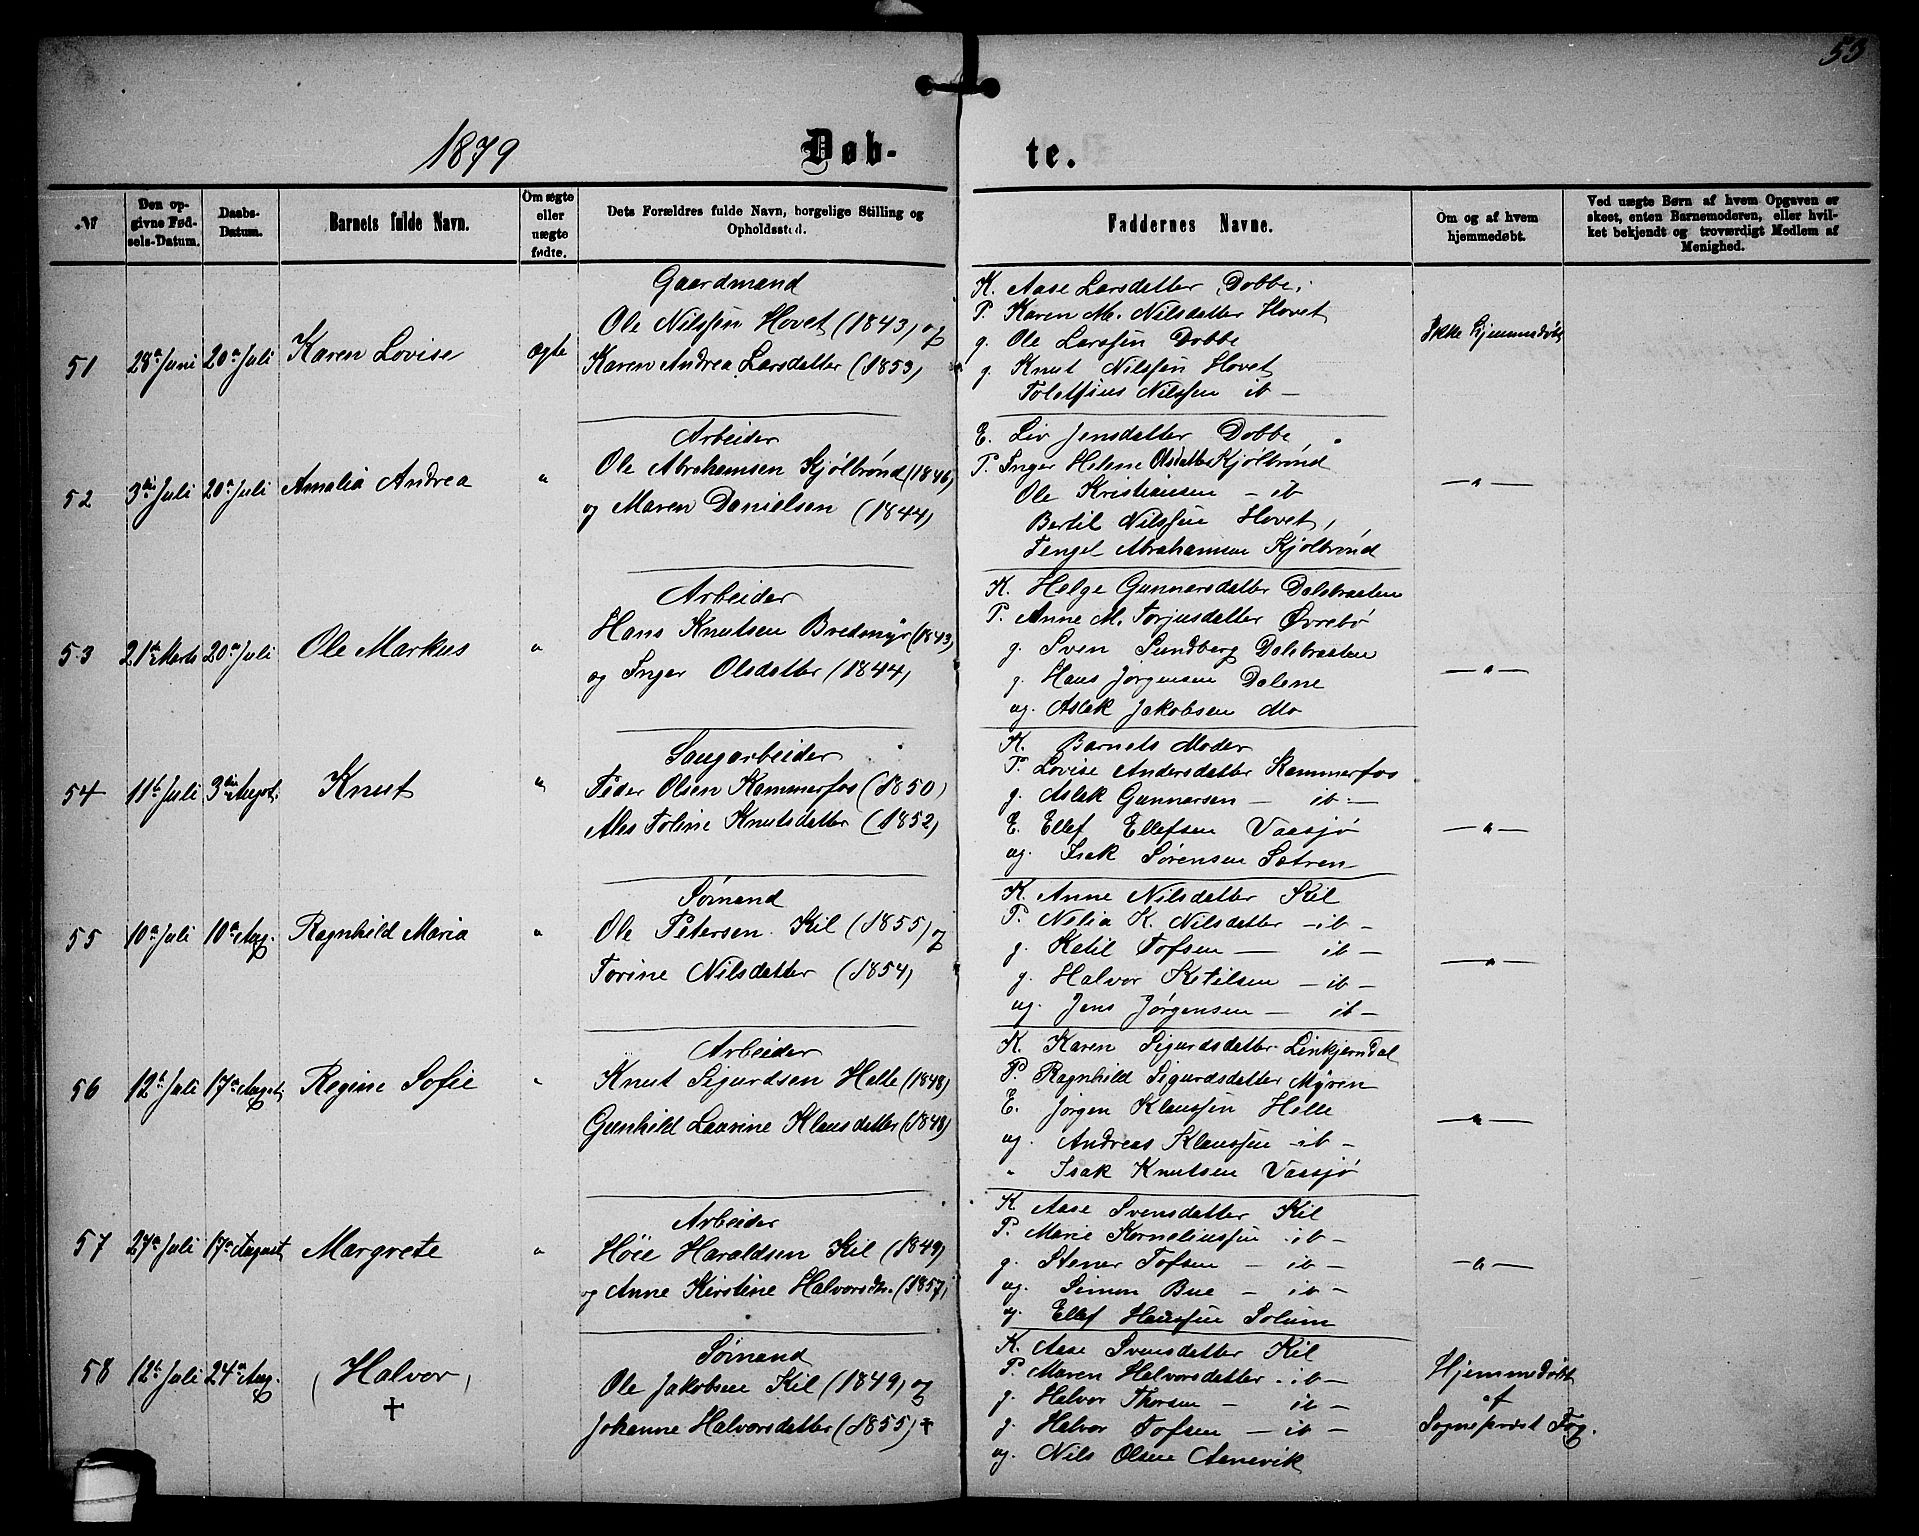 53
1879
Døb- te.
№
Den opgivne Fødsels-Datum.
Daabs-Datum.
Barnets fulde Navn.
Om ægte eller uægte fødte.
Dets Forældres fulde Navn, borgelige Stilling og Opholdssted.
Faddernes Navne.
Om og af hvem hjemmedøbt.
Ved uægte Børn af hvem Opgaven er skeet, enten Barnemoderen, eller hvilket bekjendt og troværdigt Medlem af Menighed.
51 28de Juni 20de Juli Karen Lovise ægte
Gaardmand
Ole Nilssen Hovet (1843) og
Karen Andrea Larsdatter (1853)
K. Aase Larsdatter Dobbe,
P. Karen M. Nilsdatter Hovet
g. Ole Larssen Dobbe
g. Knut Nilssen Hovet
Nilssen ib —
Ikke hjemmedøbt
52 3die Juli 20de Juli Amalia Andrea "
Arbeider
Ole Abrahamsen Kjølbrønd (1846)
og Maren Danielsen (1844)
E. Liv Jensdatter Dobbe,
P. Inger Helene Olsdatter Kjølbrønd
Ole Kristiansen — ib
Bertil Nilssen Hovet,
Tengel Abrahamsen Kjølbrønd
— " —
53 21de Marts 20de Juli Ole Markus "
Arbeider
Hans Knutsen Bredmyr (1843)
og Inger Olsdatter (1844)
K. Helge Gunnarsdatter Dalebraaten
P. Anne M. Torjusdatter Øvrebø
g. Sven Sundberg Dalebraaten
g. Hans Jørgensen Dalene
ug. Aslak Jakobsen Mo
— " —
54 11te Juli 3die Augst. Knut "
Saugarbeider
Peder Olsen Kammerfos (1850)
Ales Toline Knutsdatter (1852)
K. Barnets Moder
P. Lovise Andersdatter Kammerfos
g. Aslak Gunnarsen — ib. —
E. Ellef Ellefsen Vaasjø
ug. Isak Sørensen Sætren
— " —
55 10de Juli 10de Aug. Ragnhild Maria "
Sømand
Ole Petersen Kil (1855) og
Torine Nilsdatter (1854)
K. Anne Nilsdatter Kil
P. Nilia K. Nilsdatter — ib —
g. Ketil Tofsen — ib —
g. Halvor Ketilsen — ib —
ug. Jens Jørgensen — ib —
— " —
56 12te Juli 17de August Regine Sofie "
Arbeider
Knut Sigurdsen Helle (1848)
Gunhild Laurine Klausdatter (1848)
K. Karen Sigurdsdatter Linkjerndal
P. Ragnhild Sigurdsdatter Myren
E. Jørgen Klaussen Helle
ug. Andreas Klaussen — ib —
" Isak Knutsen Vaasjø
— " —
57 27de Juli 17de August Margrete "
Arbeider
Høie Haraldsen Kil (1849)
og Anne Kirstine Halvorsdtr. (1857)
K. Aase Svensdatter Kil
P. Marie Korneliussen — ib —
g. Stener Tofsen — ib —
ug. Simon Bue — ib —
ug. Ellef Hanssen Solum
— " —
58 12te Juli 24de Aug. (Halvor)
†
Sømand
Ole Jakobsen Kil (1849) og
Johanne Halvorsdatter (1855) †
K. Aase Svensdatter Kil
P. Maren Halvorsdatter — ib —
g. Halvor Thorsen — ib —
g. Halvor Tofsen — ib —
ug. Nils Olsen Aarevik
Hjemmedøbt
af
Sogneprest Fog.